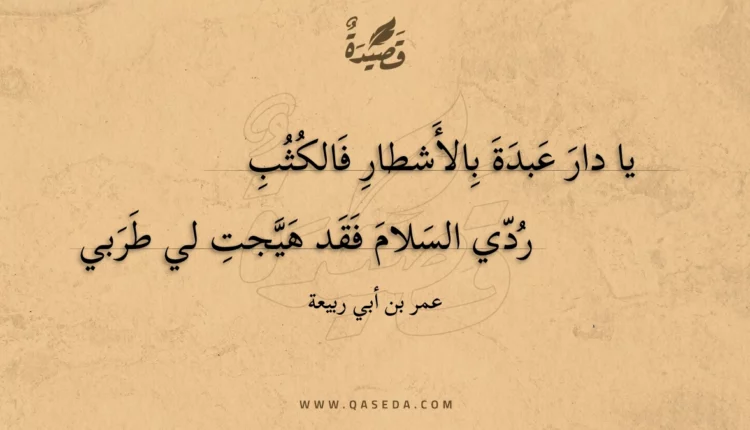 قَصِيْدَةٌ
يا دارَ عَبدَةَ بِالأَشطارِ فَالكُثُبِ
رُدّي السَلامَ فَقَد هَيَّجتِ لي طَرَبي
عمر بن أبي ربيعة
WWW.QASEDA.COM